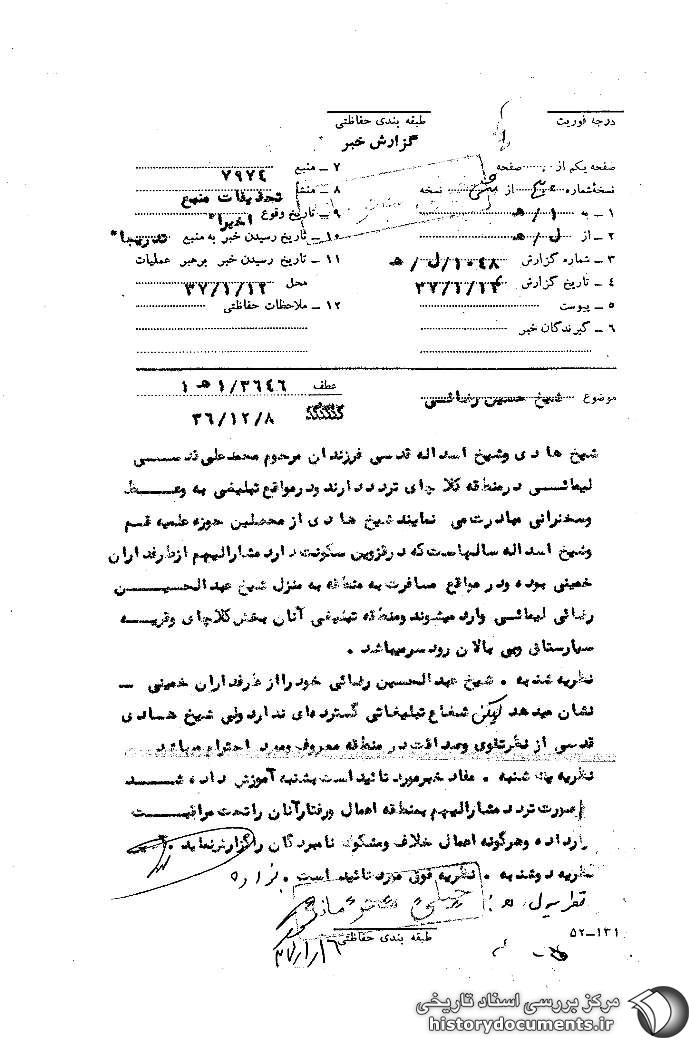 درجه فوریت
طبقه بندی حفاظتی
گزارش خبر
صفحه یکم از صفحه
نسخه شماره از نسخه
۱ ـ به ۱/هـ
۲ ـ از ل/هـ
۳ ـ شماره گزارش ۱۰۴۸/ل/هـ
۴ ـ تاریخ گزارش ۳۷/۱/۱۴
۵ ـ پیوست
۶ ـ گیرندگان خبر
۷ ـ منبع ۷۹۷۴
۸ ـ منشأ تحقیقات منبع
۹ ـ تاریخ وقوع اخیرا"
۱۰ ـ تاریخ رسیدن خبر به منبع تدریجا"
۱۱ ـ تاریخ رسیدن خبر برهبر عملیات
محل ۳۷/۱/۱۲
۱۲ ـ ملاحظات حفاظتی
موضوع شیخ حسین رضائی
عطف ۳۶۴۶/۱ هـ ۱
۳۶/۱۲/۸
شیخ هادی وشیخ اسداله قدسی فرزندان مرحوم محمدعلی قدسی
لیمائی درمنطقه کلاچای تردددارند ودرمواقع تبلیغی به وعظ
وسخنرانی مبادرت می نمایند شیخ هادی از محصلین حوزه علمیه قم
وشیخ اسداله سالهاست که درقزوین سکونت دارد مشارالیهم ازطرفداران
خمینی بوده ودر مواقع مسافرت به منطقه به منزل شیخ عبدالحسین
رضائی لیمائی وارد میشوند ومنطقه تبلیغی آنان بخش کلاچای وقریه
سیارستاق وبی بالان رودسرمیباشد .
نظریه شنبه . شیخ عبدالحسین رضائی خودرا از طرفداران خمینی
نشان میدهد لیکن شعاع تبلیغاتی گسترده‌ای ندارد ولی شیخ هادی
قدسی از نظرتقوی وصداقت در منطقه معروف ومورد احترام میباشد
نظریه یکشنبه . مفاد خبرمورد تائید است بشنبه آموزش داده شد
درصورت تردد مشارالیهم بمنطقه اعمال ورفتارآنان راتحت مراقبت
قرارداده وهرگونه اعمال خلاف ومشکوک نامبردگان راگزارش نماید .
نظریه دوشنبه . نظریه فوق مورد تائید است .
خیلی محرمانه
طبقه بندی حفاظتی
۳۷/۱/۱۶
۵۲ـ۱۳۱
مرکز بررسی اسناد تاریخی
historydocuments.ir